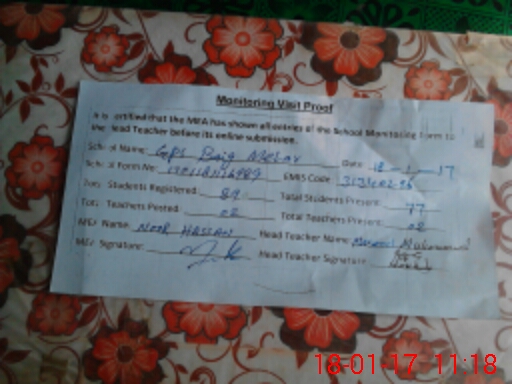 Monitoring Visit Proof
It is certified that the MEA has shown all entries of the School Monitoring Form to
the Head Teacher before its online submission.
School Name: GPS Baig Mesar Date 18-1-17
School Form No: EMIS Code:
Total Students Registered: 89 Total Students Present: 77
Total Teachers Posted: 02 Total Teachers Present: 02
MEA Name: NOOR HASSAN Head Teacher Name: Muhammad
MEA Signature: Head Teacher Signature:
18-01-17 11:18